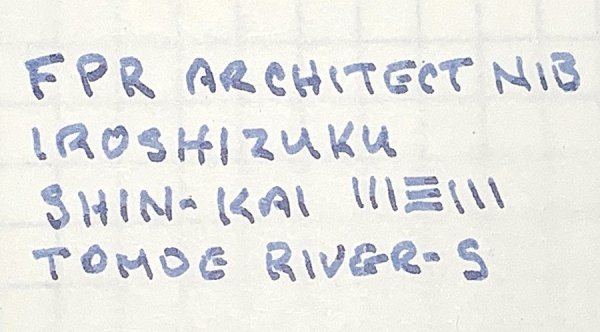 FPR ARCHITECT NIB
IROSHIZUKU
SHIN-KAI |||☰|||
TOMOE RIVER-S